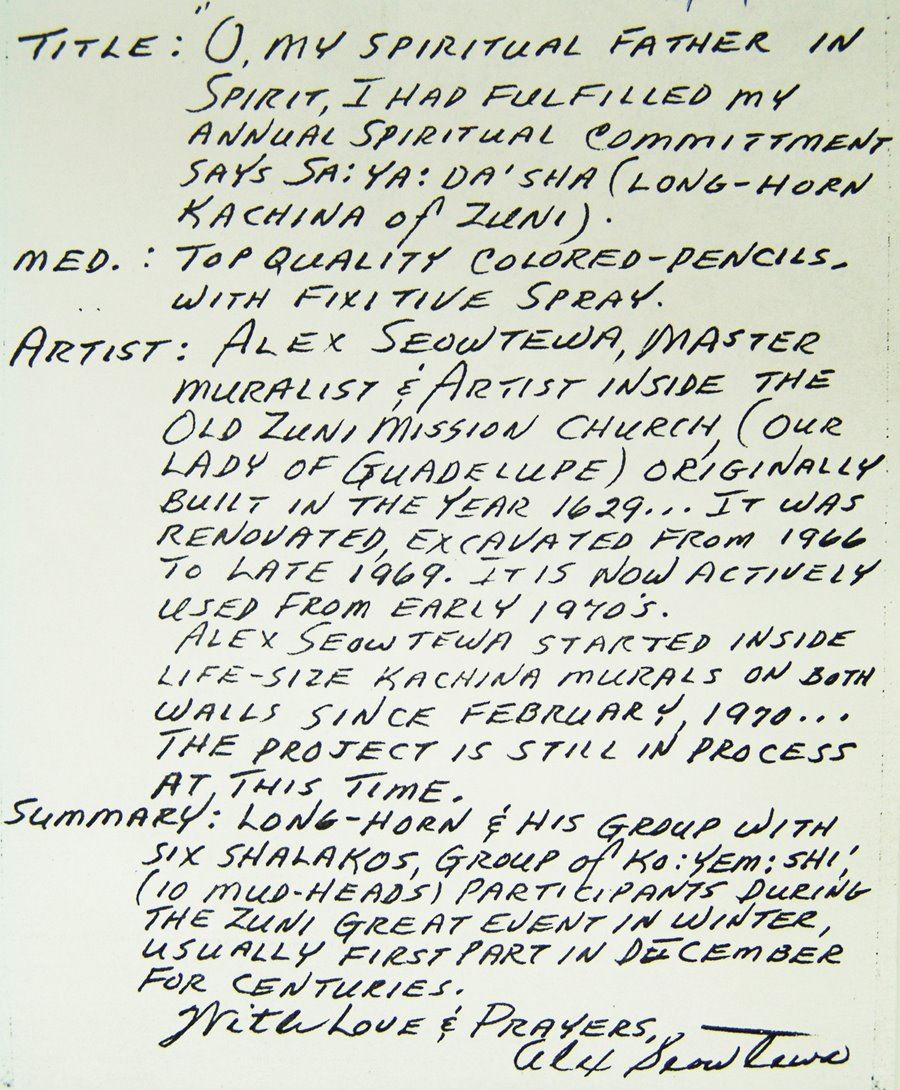 TITLE: "O, MY SPIRITUAL FATHER IN
SPIRIT, I HAD FULFILLED MY
ANNUAL SPIRITUAL COMMITTMENT
SAYS SA:YA:DA'SHA (LONG-HORN
KACHINA of ZUNI).
MED.: TOP QUALITY COLORED-PENCILS,
WITH FIXITIVE SPRAY.
ARTIST: ALEX SEOWTEWA, MASTER
MURALIST & ARTIST INSIDE THE
OLD ZUNI MISSION CHURCH, (OUR
LADY OF GUADELUPE) ORIGINALLY
BUILT IN THE YEAR 1629... IT WAS
RENOVATED, EXCAVATED FROM 1966
TO LATE 1969. IT IS NOW ACTIVELY
USED FROM EARLY 1970'S.
ALEX SEOWTEWA STARTED INSIDE
LIFE-SIZE KACHINA MURALS ON BOTH
WALLS SINCE FEBRUARY, 1970...
THE PROJECT IS STILL IN PROCESS
AT THIS TIME.
SUMMARY: LONG-HORN & HIS GROUP WITH
SIX SHALAKOS, GROUP of KO:YEM:SHI',
(10 MUD-HEADS) PARTICIPANTS DURING
THE ZUNI GREAT EVENT IN WINTER,
USUALLY FIRST PART IN DECEMBER
FOR CENTURIES.
With LOVE & PRAYERS,
Alex Seowtewa